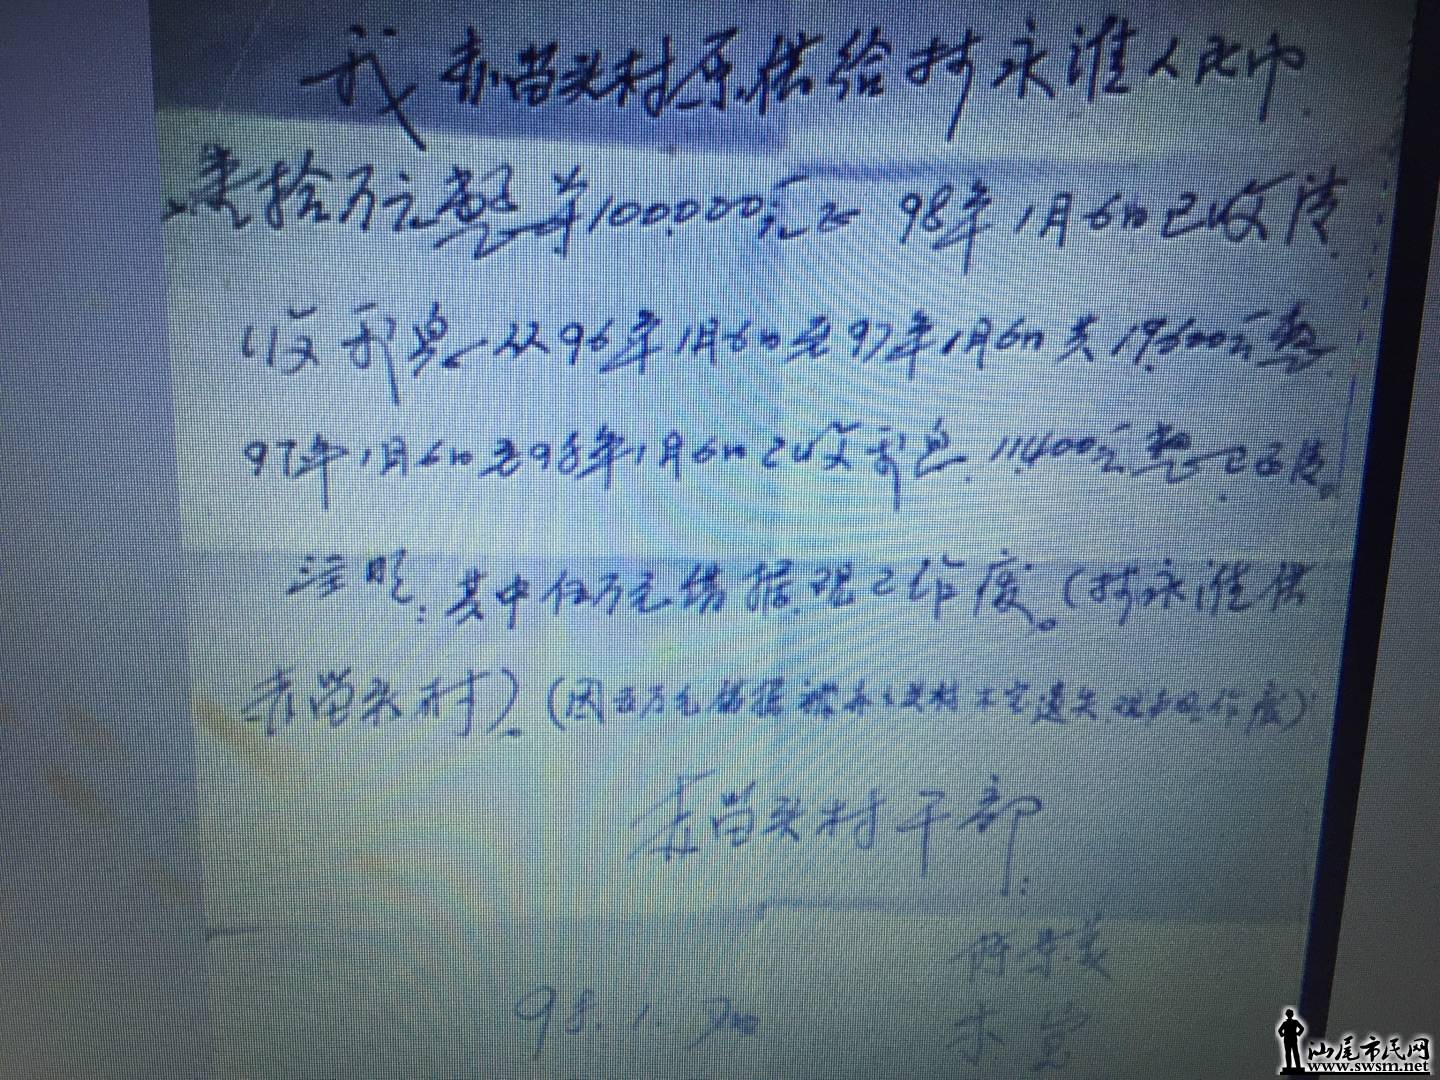 我赤岗头村原借给林永淮人民币
壹拾万元整￥100000元在98年1月6日已收清
收利息从96年1月6日至97年1月6日共19600元整
97年1月6日至98年1月6日已收利息11400元整已还清。
注明：其中伍万元借据现已作废。（林永淮借
赤岗头村）（因五万元借据被 村 遗失 作废）
赤岗头村干部：
98.1.7日
汕尾市民网
www.swsm.net